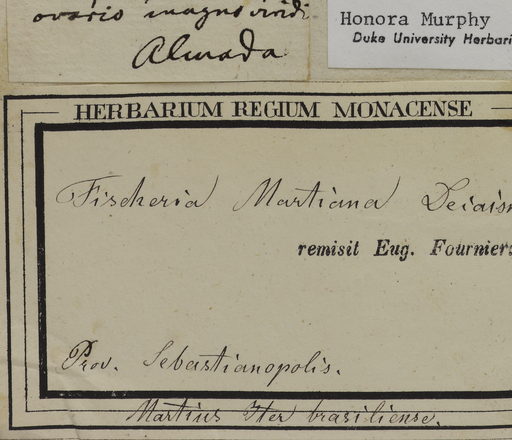 ovaris magno viridi
Almada
Honora Murphy
Duke University Herbari
HERBARIUM REGIUM MONACENSE
Fischeria Martiana Decaisn
remisit Eug. Fournier
Prov. Sebastianopolis.
Martius Iter brasiliense.